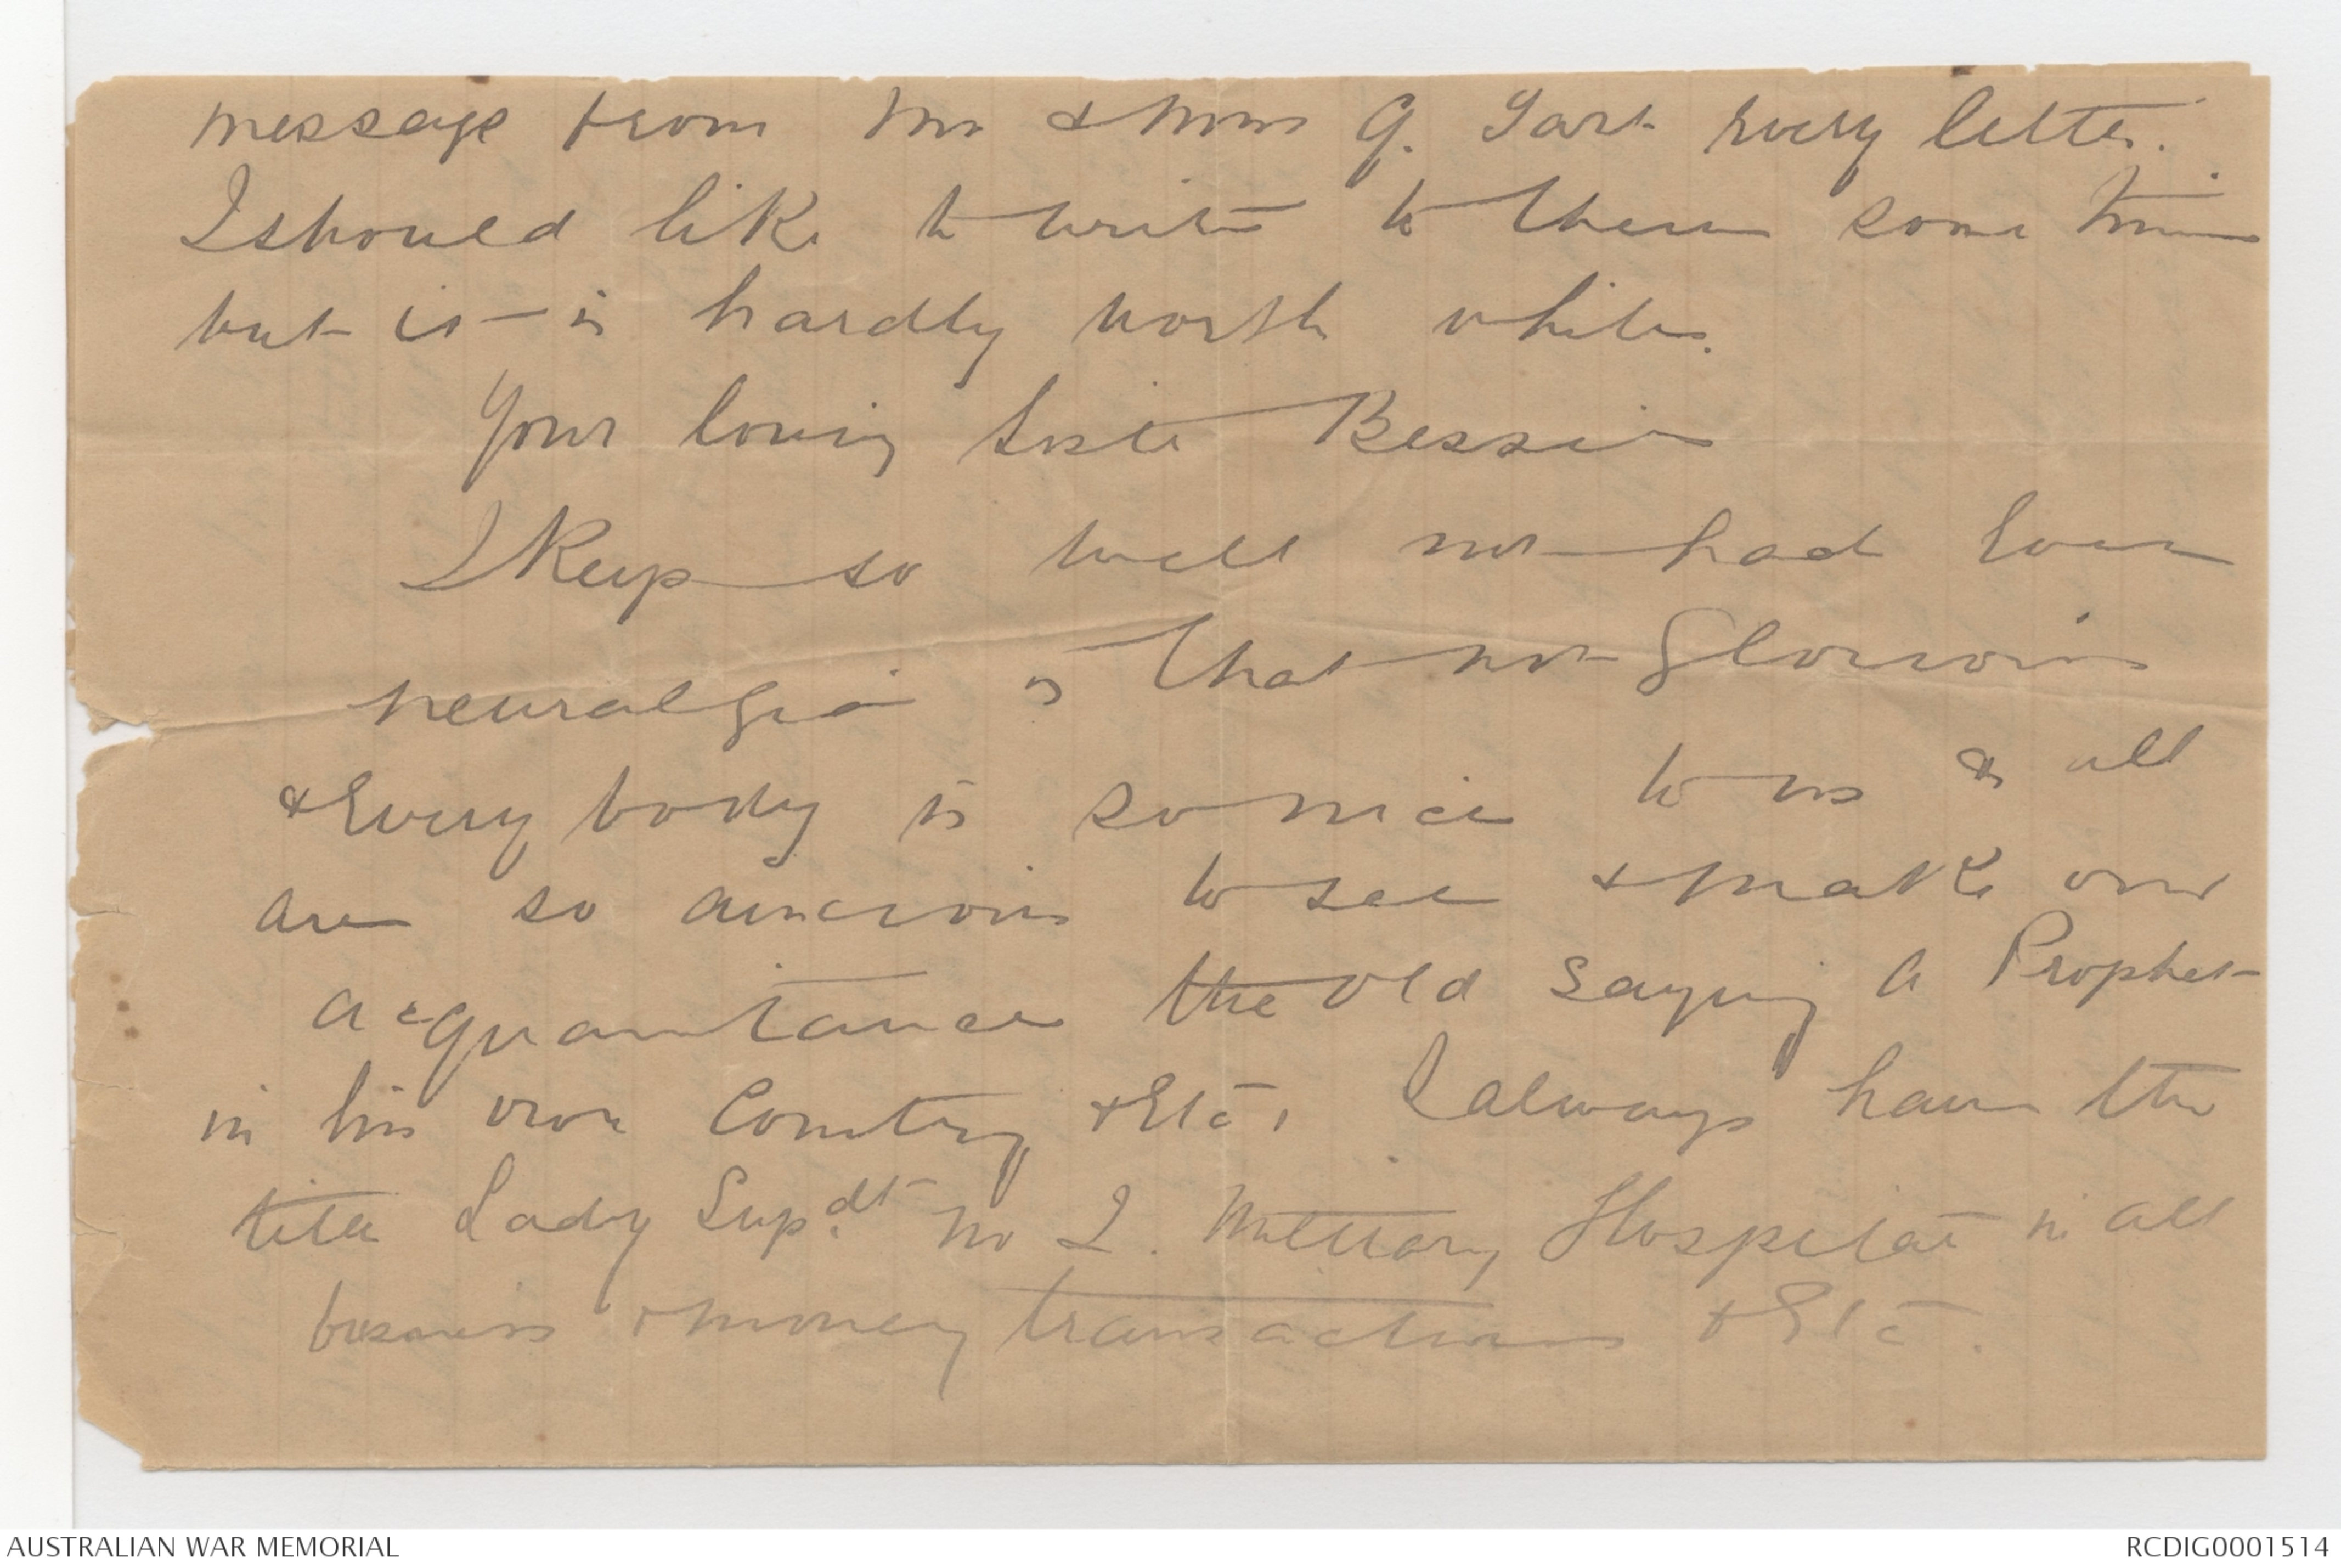 message from Mr & Mrs G. every letter.
I should like to write to them some time
but it is hardly worth while.
Your loving Sister Bessie
I keep so well not had even
neuralgia is that not Glorious
& Every body is so nice to us & all
are so anxious to see & make our
acquaintance the old saying a Prophet
in his own Country & Etc. I always have the
title Lady Supdt. No 2. Military Hospital in all
business & money transactions & Etc.
AUSTRALIAN WAR MEMORIAL
RCDIG0001514